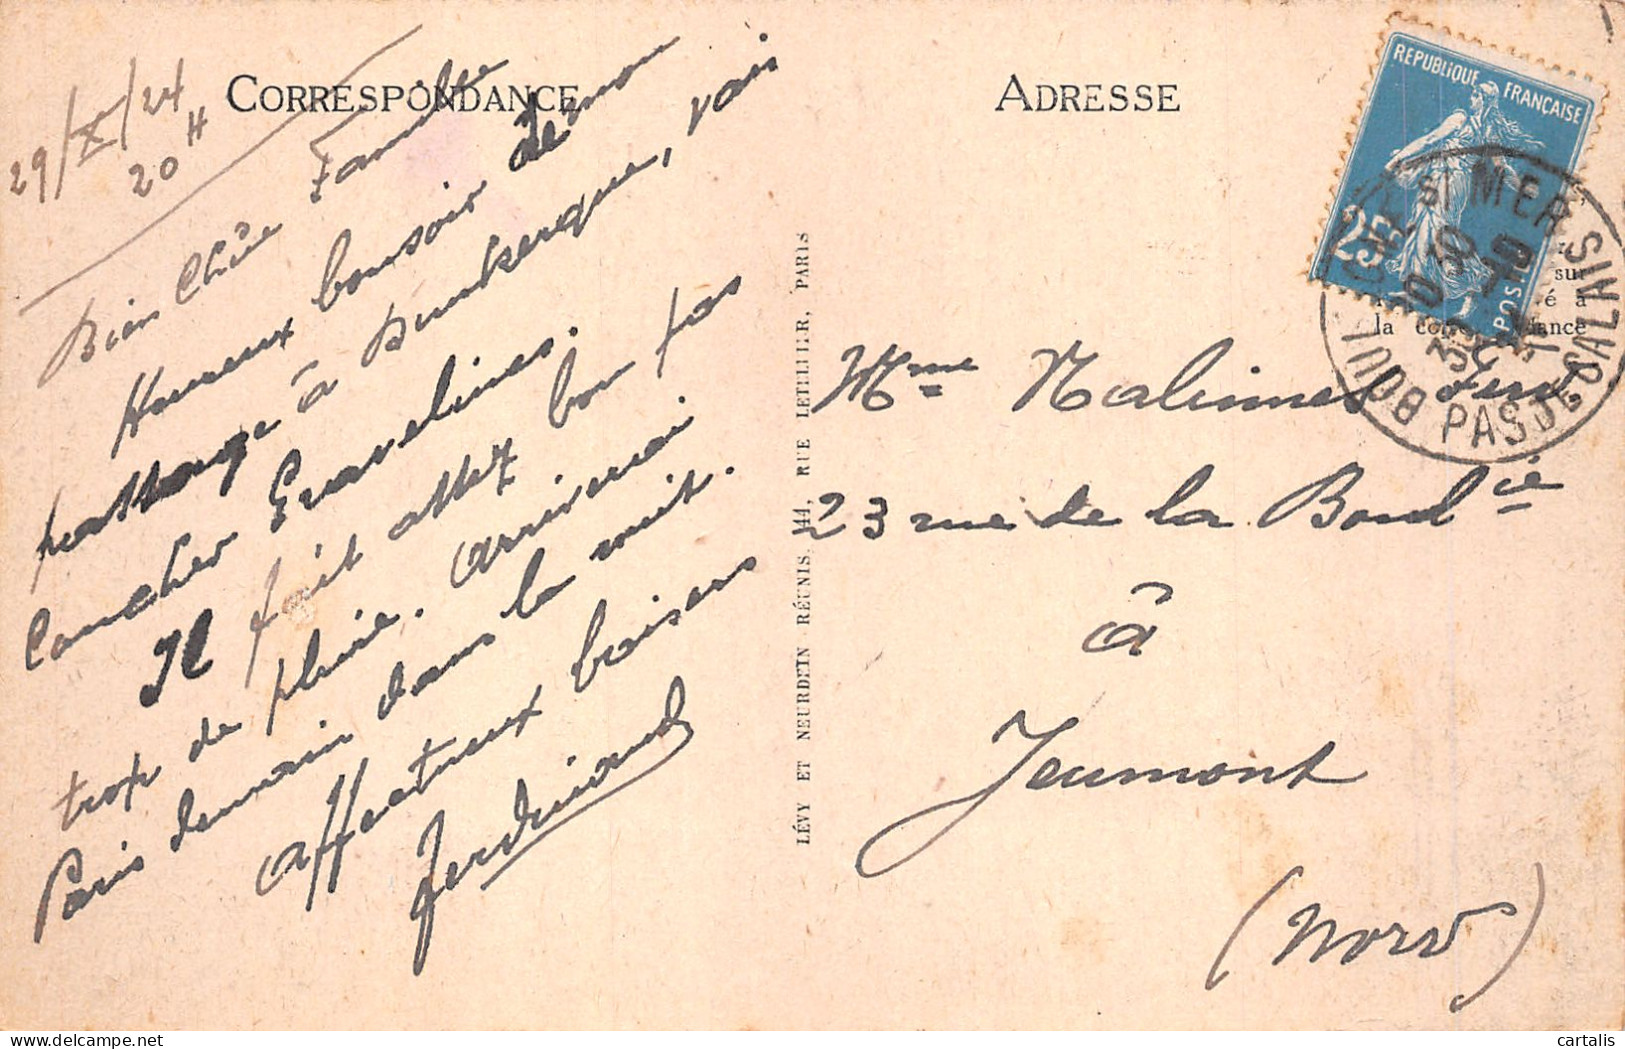 CORRESPONDANCE
29/X/24
20 H
Bien Chère Famille
Heureux bonsoir de mon
passage à Dunkerque, vais
coucher Gravelines.
Il fait assez bon pas
trop de pluie. arriverai
Paris demain dans la nuit.
affectueux baisers
Ferdinand
LÉVY ET NEURDEIN RÉUNIS, 44, RUE LETELLIER, PARIS
ADRESSE
REPUBLIQUE FRANÇAISE
25
POSTES
BOULOGNE S/ MER SINALE
PAS DE CALAIS
sur
é à
la correspondance
Mme Malinnes Ferd
23 rue de la Boul ie
à
Jeumont
(Nord)
cartalis